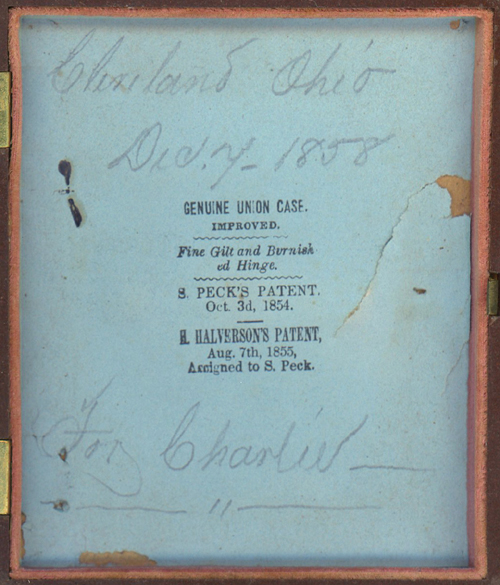 Cleveland Ohio
Dec. 7 - 1858
GENUINE UNION CASE.
IMPROVED.
Fine Gilt and Burnish
ed Hinge.
S. PECK'S PATENT.
Oct. 3d, 1854.
H. HALVERSON'S PATENT,
Aug. 7th, 1855,
Assigned to S. Peck.
For Charlie —
— " —